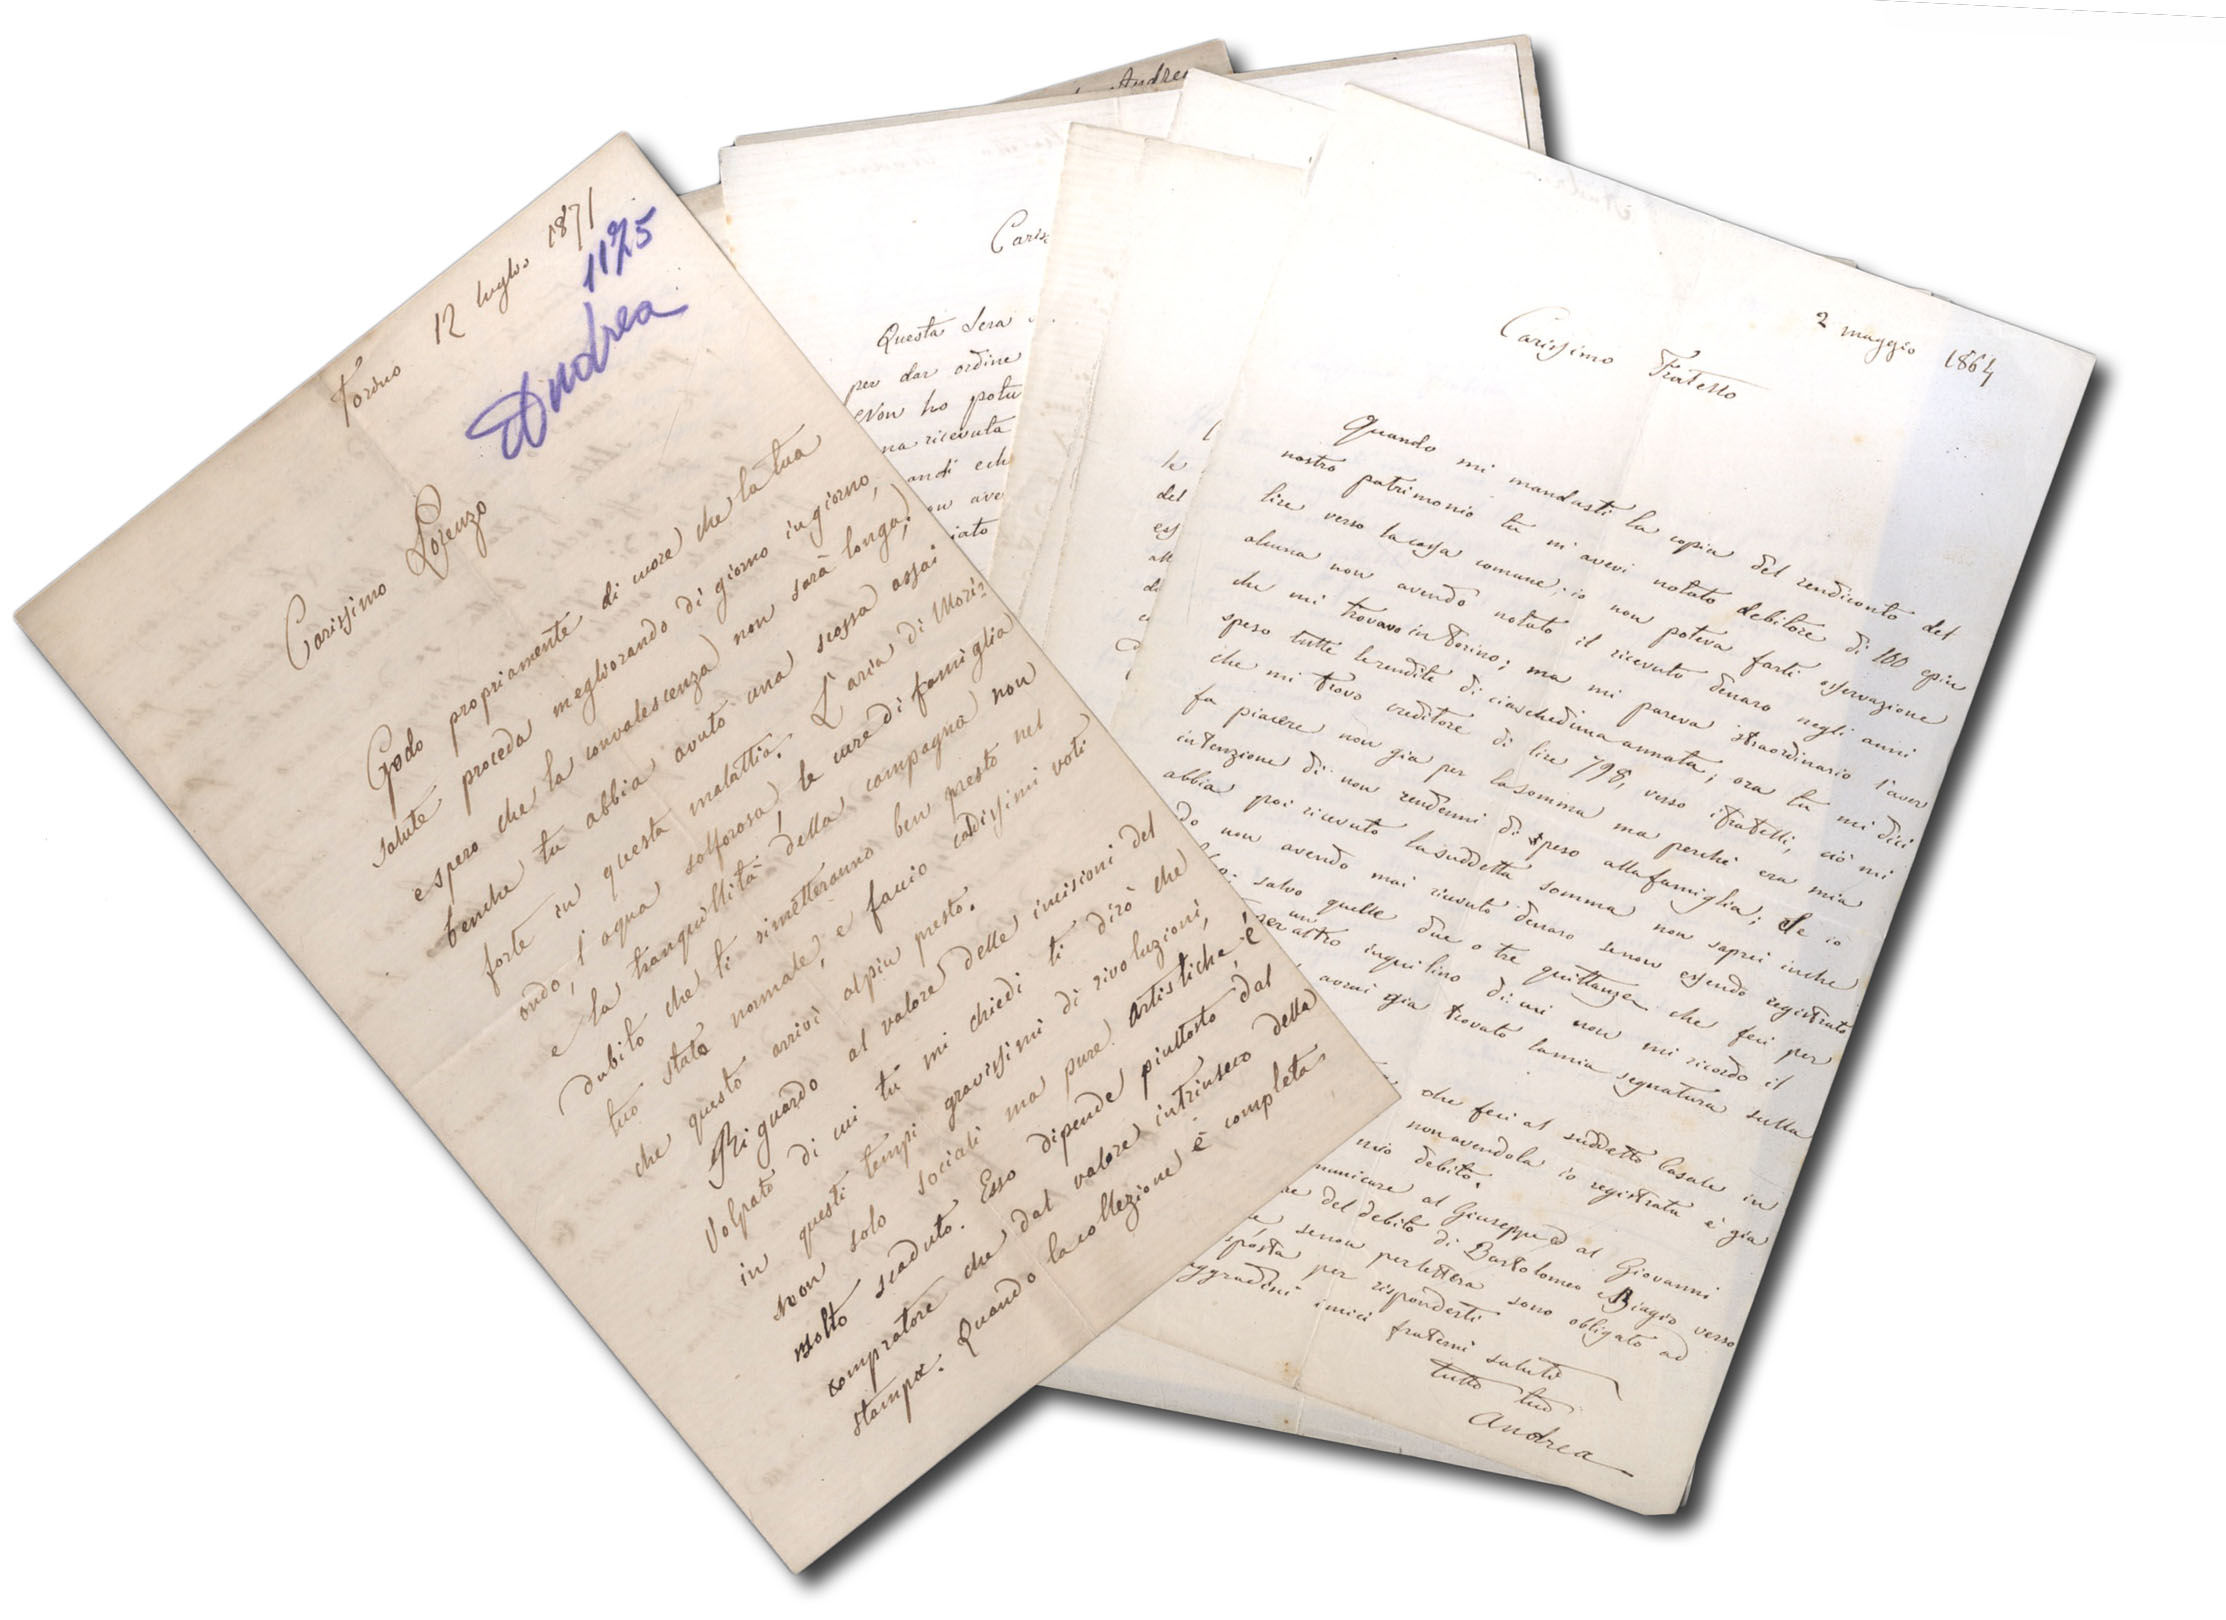 Torino 12 luglio 1871
1175
Andrea
Carissimo Lorenzo
Godo propriamente di cuore che la tua
salute proceda megliorando di giorno in giorno,
e spero che la convalescenza non sarà longa,
benche tu abbia avuto una scossa assai
forte in questa malattia. L'aria di Mori=
ondo, l'aqua solforosa, le cure di famiglia
e la tranquillità della campagna non
dubito che ti rimetteranno ben presto nel
tuo stato normale, e faccio caldissimi voti
che questo arrivi al piu presto.
Riguardo al valore delle incisioni del
Volpato di cui tu mi chiedi ti dirò che
in questi tempi gravissimi di rivoluzioni,
non solo sociali ma pure artistiche, é
molto scaduto. Esso dipende piuttosto dal
compratore che dal valore intrinseco della
stampa. Quando la collezione é completa
Andrea
Caris
Questa sera
per dar ordine
Non ho potu
na ricevuta
andi
iato
le
del
2 maggio 1864
Carissimo Fratello
Quando mi mandasti la copia del rendiconto del
nostro patrimonio tu mi avevi notato debitore di 100 epiu
lire verso la cassa comune; io non poteva farti osservazione
alcuna non avendo notato il ricevuto denaro negli anni
che mi trovavo in Torino; ma mi pareva straordinario l'aver
speso tutte le rendite di ciascheduna annata; ora tu mi dici
che mi trovo creditore di lire 798, verso i fratelli, ciò mi
fa piacere non gia per la somma ma perche era mia
intenzione di non rendermi di peso alla famiglia; Se io
abbia poi ricevuto la suddetta somma non saprei inche
do non avendo mai ricevuto denaro senon essendo registrato
salvo quelle due o tre quittanze che feci per
un altro inquilino di cui non mi ricordo il
avrai gia trovato la mia segnatura sulla
che feci al suddetto Casale in
non avendola io registrata è gia
mio debito.
municare al Giuseppe e al Giovanni
del debito di Bartolomeo e Biagio verso
senon per lettera sono obligato ad
sposta per risponderti
ggradisci i miei fraterni saluti
tutto tuo
Andrea